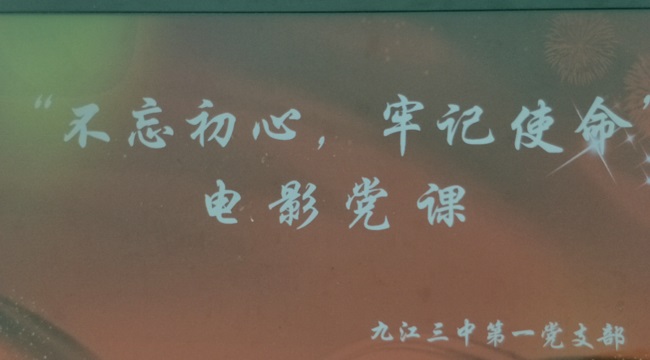 “不忘初心，牢记使命”
电影党课
九江三中第一党支部